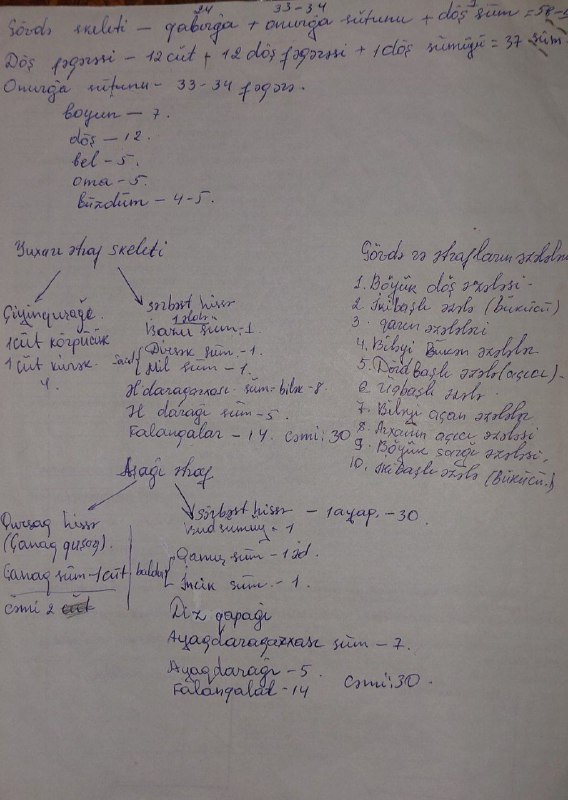 24 33-34 1
Gövdə skeleti - qabırğa + onurğa sütunu + döş süm = 58-5
Döş fəqərəsi - 12 cüt + 12 döş fəqərəsi + 1 döş sümüyü = 37 süm.
Onurğa sütunu - 33-34 fəqərə.
boyun - 7.
döş - 12.
bel - 5.
oma - 5.
büzdüm - 4-5.
Yuxarı ətraf skeleti
Çiyinqurağı.
1 cüt körpücük
1 cüt kürək
4.
sərbəst hissə
Bazu süm. - 1
Said { Dirsək süm. - 1.
Mil süm - 1.
Əl darağarxası süm = bilək - 8
Əl darağı süm - 5.
Falanqalar - 14. cəmi: 30
Gövdə və ətrafların əzələləri
1. Böyük döş əzələsi.
2. İkibaşlı əzələ (bükücü)
3. qarın əzələləri
4. Biləyi bükən əzələlər
5. Dördbaşlı əzələ (açıcı).
6. Üçbaşlı əzələ
7. Biləyi açan əzələlər
8. Arxanın açıcı əzələsi
9. Böyük sağrı əzələsi.
10. İkibaşlı əzələ (Bükücü.)
Aşağı ətraf
Qurşaq hissə
(Çanaq qurşağı).
Çanaq süm - 1 cüt
cəmi 2
Sərbəst hissə - 1 ayaq - 30.
Bud sümüyü - 1
baldır { Qamış süm - 1 əd.
İncik süm. - 1.
Diz qapağı
Ayaqdarağarxası süm - 7.
Ayaqdarağı - 5
Falanqalar - 14 cəmi: 30.